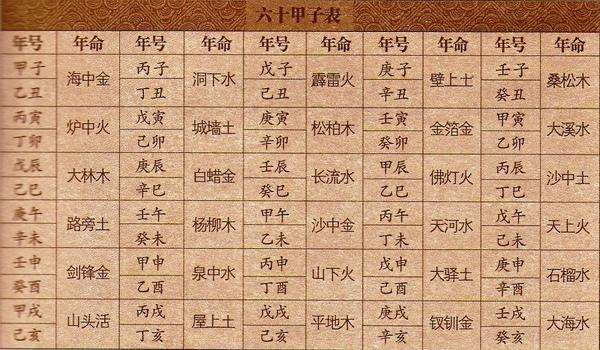 六十甲子表
年号 年命 年号 年命 年号 年命 年号 年命 年号 年命
甲子 丙子 戊子 庚子 壬子
海中金 洞下水 霹雷火 壁上土 桑松木
乙丑 丁丑 己丑 辛丑 癸丑
丙寅 戊寅 庚寅 壬寅 甲寅
炉中火 城墙土 松柏木 金箔金 大溪水
丁卯 己卯 辛卯 癸卯 乙卯
戊辰 庚辰 壬辰 甲辰 丙辰
大林木 白蜡金 长流水 佛灯火 沙中土
己巳 辛巳 癸巳 乙巳 丁巳
庚午 壬午 甲午 丙午 戊午
路旁土 杨柳木 沙中金 天河水 天上火
辛未 癸未 乙未 丁未 己未
壬申 甲申 丙申 戊申 庚申
剑锋金 泉中水 山下火 大驿土 石榴水
癸酉 乙酉 丁酉 己酉 辛酉
甲戌 丙戌 戊戌 庚戌 壬戌
山头活 屋上土 平地木 钗钏金 大海水
乙亥 丁亥 己亥 辛亥 癸亥